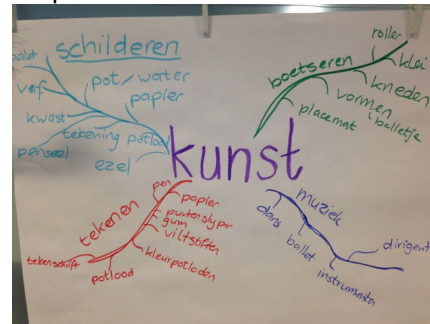 schilderen
palet
verf
pot/water
papier
kwast
tekening potlood
penseel
ezel
boetseren
roller
klei
kneden
vormen
balletje
placemat
kunst
tekenen
pen
papier
puntenslyper
gum
viltstiften
kleurpotloden
potlood
tekenschrift
muziek
dans
ballet
instrumenten
dirigent